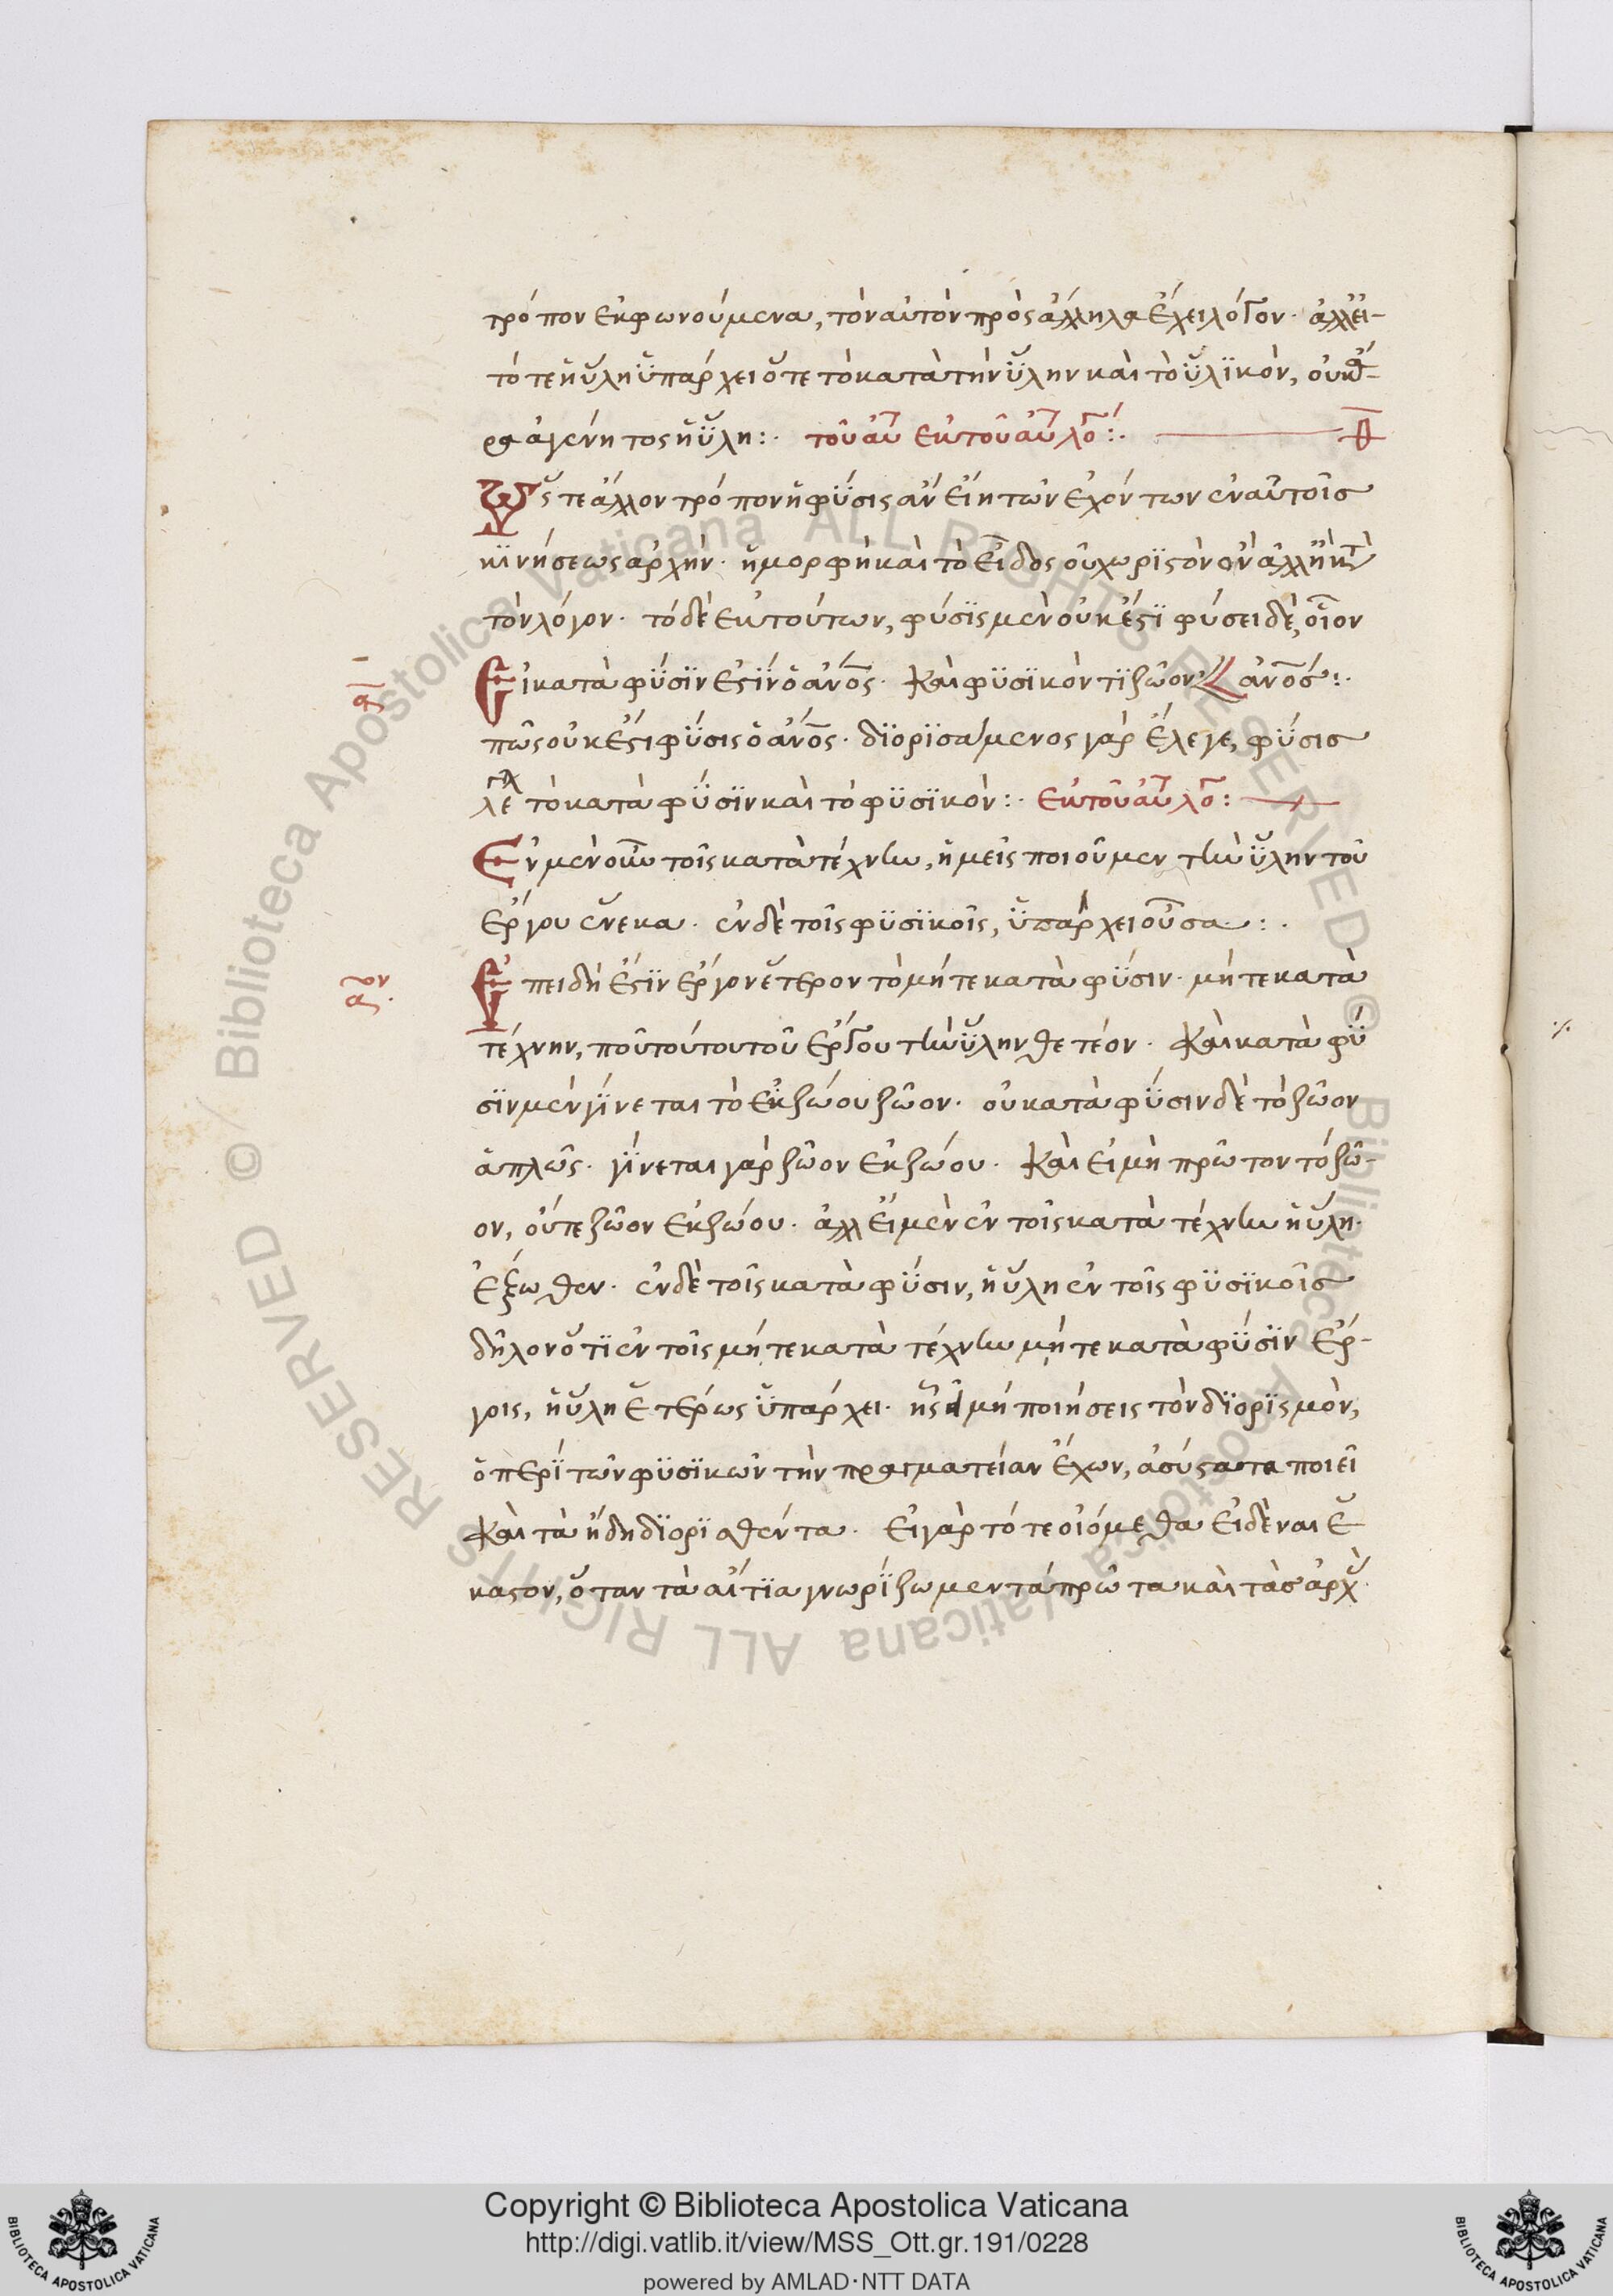 τρόπον ἐκφωνούμενα, τὸν αὐτὸν πρὸς ἄλληλα ἔχει λόγον· ἀλλ' εἰ-
τό τε ἡ ὕλη ὑπάρχει ὅτε τὸ κατὰ τὴν ὕλην καὶ τὸ ὑλικὸν, οὐκ
ἀγένητος ἡ ὕλη :· τοῦ αὐ ἐκ τοῦ αὐ λό :·
Ὥστε ἄλλον τρόπον ἡ φύσις ἂν εἴη τῶν ἐχόντων ἐν αὐτοῖς
κινήσεως ἀρχὴν· ἡ μορφὴ καὶ τὸ εἶδος οὐ χωριστὸν ὂν ἀλλ' ἢ κτ
τὸν λόγον· τὸ δὲ ἐκ τούτων, φύσις μὲν οὐκ ἔστι φύσει δὲ, οἷον
Εἰ κατὰ φύσιν ἐστὶν ὁ ἄνος· καὶ φυσικὸν τὶ ζῶον ἄνος :·
πῶς οὐκ ἔστι φύσις ὁ ἄνος· διορισάμενος γὰρ ἔλεγε, φύσις
τὸ κατὰ φύσιν καὶ τὸ φυσικὸν :· ἐκ τοῦ αὐ λό :
Ἐν μὲν οὖν τοῖς κατὰ τέχνην, ἡμεῖς ποιοῦμεν τὴν ὕλην τοῦ
ἔργου ἕνεκα· ἐν δὲ τοῖς φυσικοῖς, ὑπάρχει οὖσα :·
Ἐπειδὴ ἔστιν ἔργον ἕτερον τὸ μήτε κατὰ φύσιν· μήτε κατὰ
τέχνην, ποῦ τούτου τοῦ ἔργου τὴν ὕλην θετέον· Καὶ κατὰ φύ
σιν μὲν γίνεται τὸ ἐκ ζώου ζῶον· οὐ κατὰ φύσιν δὲ τὸ ζῶον
ἁπλῶς· γίνεται γὰρ ζῶον ἐκ ζώου· Καὶ εἰ μὴ πρῶτον τὸ ζῶ-
ον, οὔτε ζῶον ἐκ ζώου· ἀλλ' εἰ μὲν ἐν τοῖς κατὰ τέχνην ἡ ὕλη·
ἔξωθεν· ἐν δὲ τοῖς κατὰ φύσιν, ἡ ὕλη ἐν τοῖς φυσικοῖς
δῆλον ὅτι ἐν τοῖς μήτε κατὰ τέχνην μήτε κατὰ φύσιν ἔρ-
γοις, ἡ ὕλη ἑτέρως ὑπάρχει· μὴ ποιήσεις τὸν διορισμὸν,
ὁ περὶ τῶν φυσικῶν τὴν πραγματείαν ἔχων, ἀσύστατα ποιεῖ
Καὶ τὰ ἤδη διορισθέντα· Εἰ γὰρ τότε οἰόμεθα εἰδέναι ἕ
καστον, ὅταν τὰ αἴτια γνωρίζωμεν τὰ πρῶτα καὶ τὰς ἀρχ
Copyright © Biblioteca Apostolica Vaticana
http://digi.vatlib.it/view/MSS_Ott.gr.191/0228
powered by AMLAD·NTT DATA
BIBLIOTECA APOSTOLICA VATICANA
BIBLIOTECA APOSTOLICA VATICANA
© Biblioteca Apostolica Vaticana ALL RIGHTS RESERVED
© Biblioteca Apostolica Vaticana ALL RIGHTS RESERVED